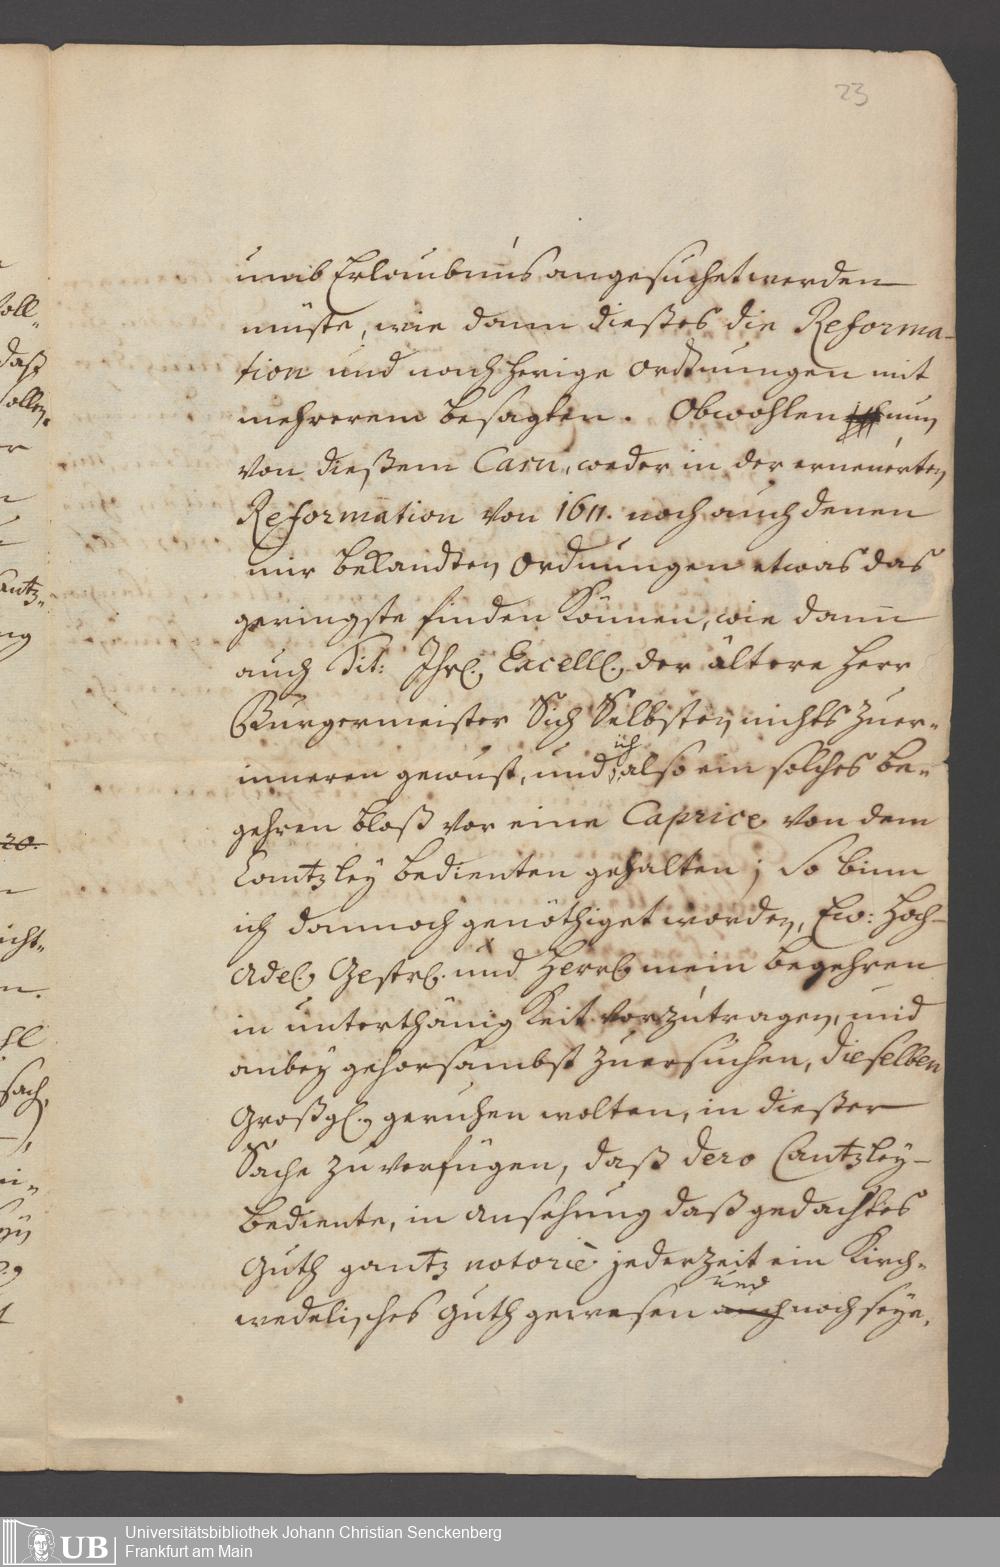 23
umb Erlaubnüs angesuchet werden
müste, wie dann dießes die Reforma-
tion und nachherige Ordnungen mit
mehrerem besagten. Obwohlen nun
von dießem Casu, weder in der erneuerten
Reformation von 1611. noch auch denen
mir bekandten Ordnungen etwas das
geringste finden können, wie dann
auch Tit: Ihrl. Excelll. der ältere Herr
Burgermeister Sich Selbsten nichts zuer-
inneren gewust, und ich also ein solches be-
gehren bloß vor eine Caprice von dem
Cantzley bedienten gehalten; So binn
ich dannoch genöthiget worden, Ew: Hoch-
Adel. Gestrl. und Herrl. mein begehren
in unterthänigkeit vorzutragen, und
anbey gehorsambst zuersuchen, dieselben
Großgl. geruhen wolten, in dießer
Sache zu verfügen, daß dero Cantzley-
bediente, in ansehung daß gedachtes
Guth gantz notoriè jederzeit ein Kirch-
wedelisches Guth gewesen und noch seye,
oll-
daß
ollen.
antz-
ng
20.
icht-
n.
hl
sach,
ei-
UB
Universitätsbibliothek Johann Christian Senckenberg
Frankfurt am Main